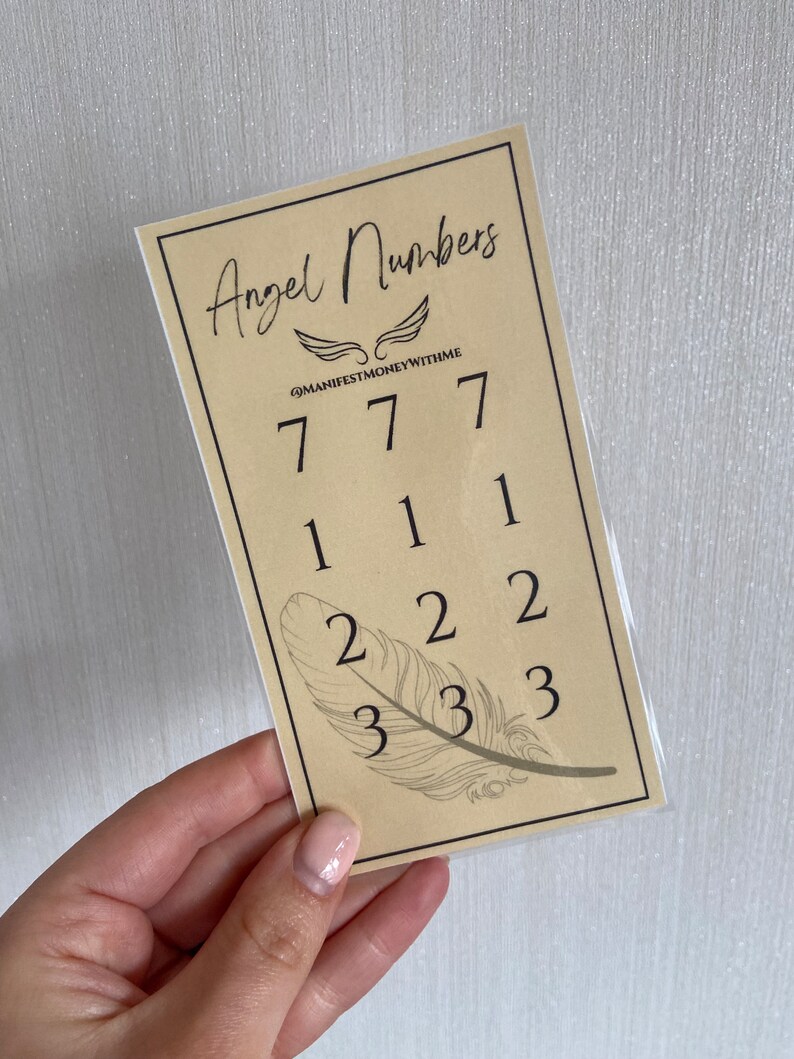 Angel Numbers
@ManifestMoneyWithMe
7 7 7
1 1 1
2 2 2
3 3 3